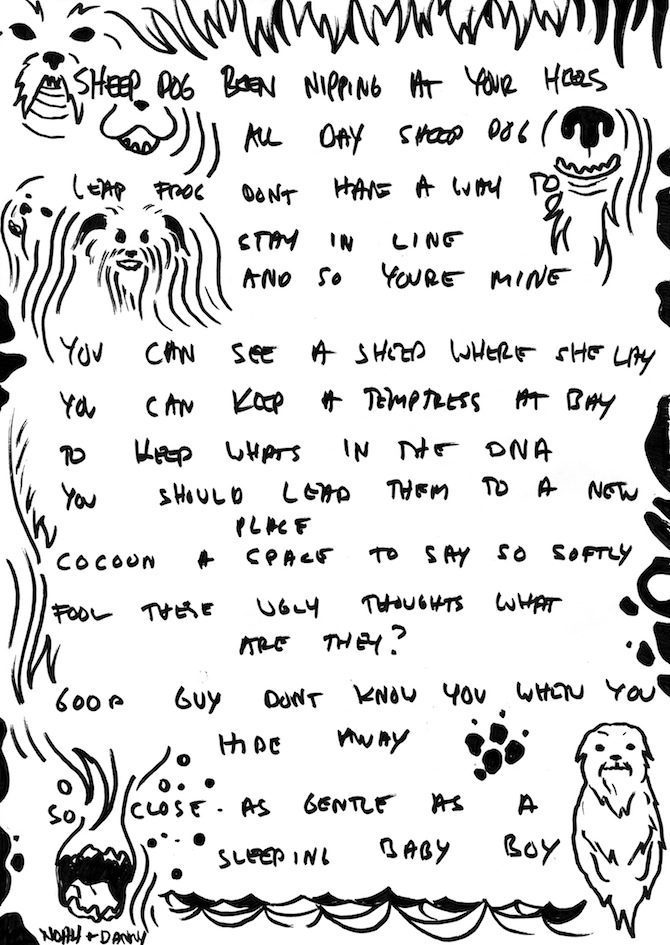 SHEEP DOG BEEN NIPPING AT YOUR HEELS
ALL DAY SHEEP DOG
LEAP FROG DONT HAVE A WAY TO
STAY IN LINE
AND SO YOURE MINE
YOU CAN SEE A SHEEP WHERE SHE LAY
YOU CAN KEEP A TEMPTRESS AT BAY
TO KEEP WHATS IN THE DNA
YOU SHOULD LEAD THEM TO A NEW
PLACE
COCOON A SPACE TO SAY SO SOFTLY
FOOL THESE UGLY THOUGHTS WHAT
ARE THEY?
GOOD GUY DONT KNOW YOU WHEN YOU
HIDE AWAY
SO CLOSE. AS GENTLE AS A
SLEEPING BABY BOY
NOAH + DANNY